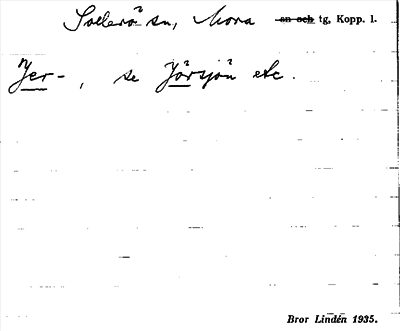 Sollerö sn, Mora ~~sn och~~ tg, Kopp. l.
Jer-, se Jörsjön etc.
Bror Lindén 1935.